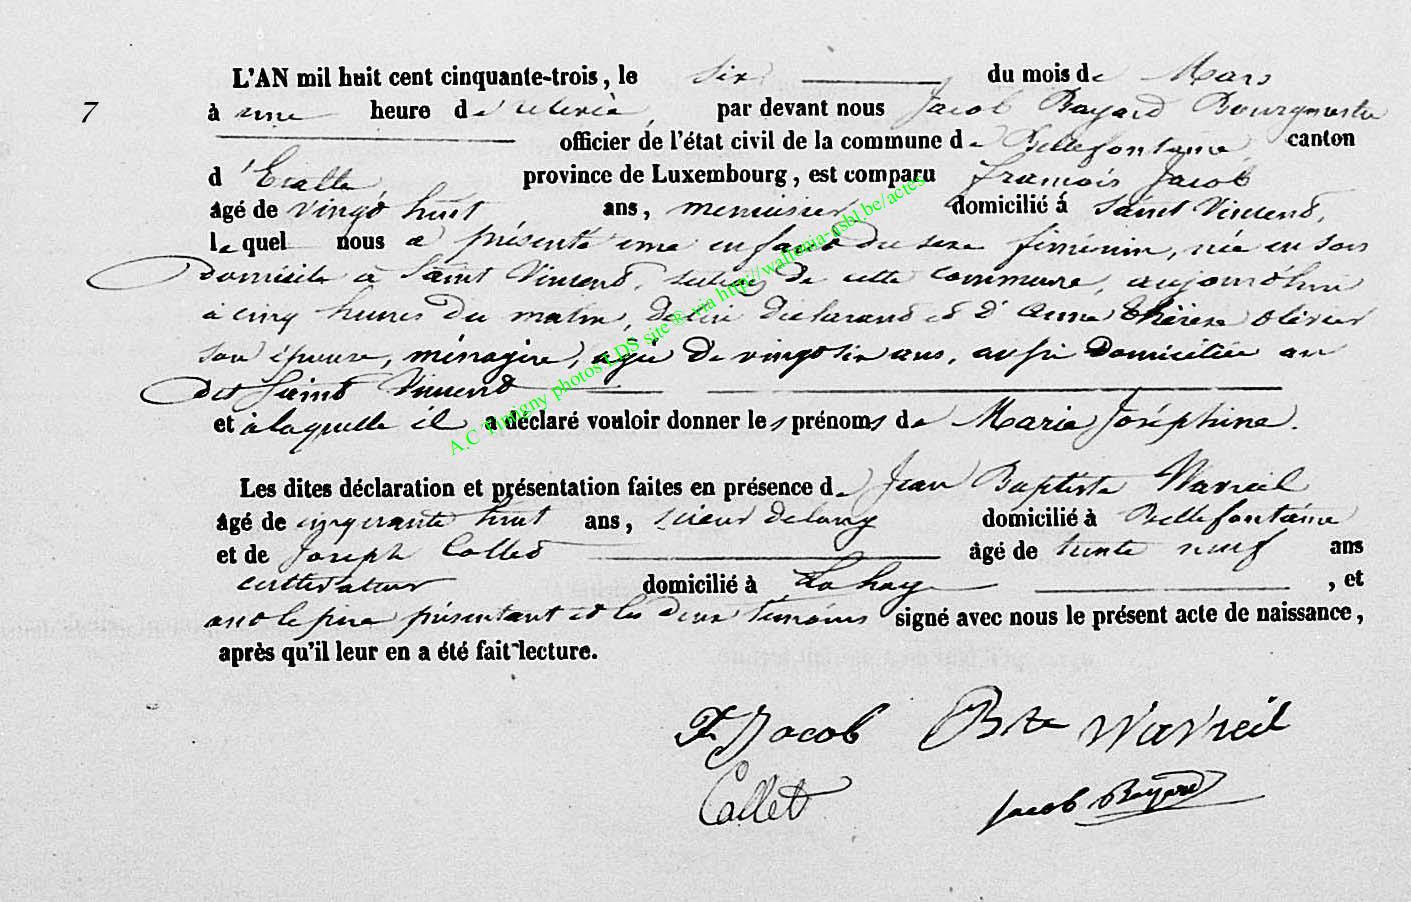 L'AN mil huit cent cinquante-trois, le six du mois de Mars
7
à une heure de relevée, par devant nous Jacob Bayard Bourgmestre
officier de l'état civil de la commune de Bellefontaine, canton
d'Etalle, province de Luxembourg, est comparu François Jacob
âgé de vingt huit ans, menuisier domicilié à Saint Vincent,
lequel nous a présenté une enfant du sexe féminin, née en son
domicile à Saint Vincent, section de cette commune, aujourd'hui
à cinq heures du matin, de lui déclarant et d'Anne Thérèse Olivier
son épouse, ménagère, agée de vingt six ans, aussi domiciliée au
dit Saint Vincent
et à laquelle il a déclaré vouloir donner les prénoms de Marie Joséphine.
Les dites déclaration et présentation faites en présence de Jean Baptiste Wavreil
âgé de cinquante huit ans, scieur de long domicilié à Bellefontaine
et de Joseph Collet âgé de trente neuf ans
cultivateur domicilié à Lahage, et
ont le père présentant et les deux témoins signé avec nous le présent acte de naissance,
après qu'il leur en a été fait lecture.
F Jacob Bte Wavreil
Collet Jacob Bayard
A.C Tintigny photos LDS site ® via http://wallonia-asbl.be/actes